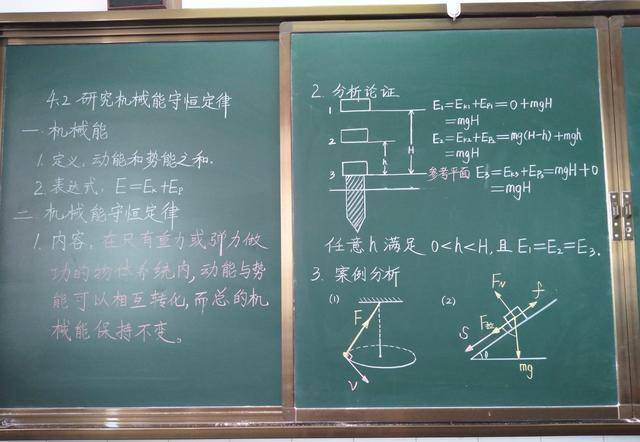 4.2 研究机械能守恒定律
一 机械能
1. 定义：动能和势能之和.
2. 表达式：E=Ek+Ep
二 机械能守恒定律
1. 内容：在只有重力或弹力做
功的物体系统内，动能与势
能可以相互转化，而总的机
械能保持不变。
2. 分析论证
1
2
3
h
H
E1=Ek1+Ep1=0+mgH
=mgH
E2=Ek2+Ep2=mg(H-h)+mgh
=mgH
参考平面
E3=Ek3+Ep3=mgH+0
=mgH
任意h满足 0<h<H, 且E1=E2=E3.
3. 案例分析
(1)
F
v
(2)
FN
f
S
θ
mg